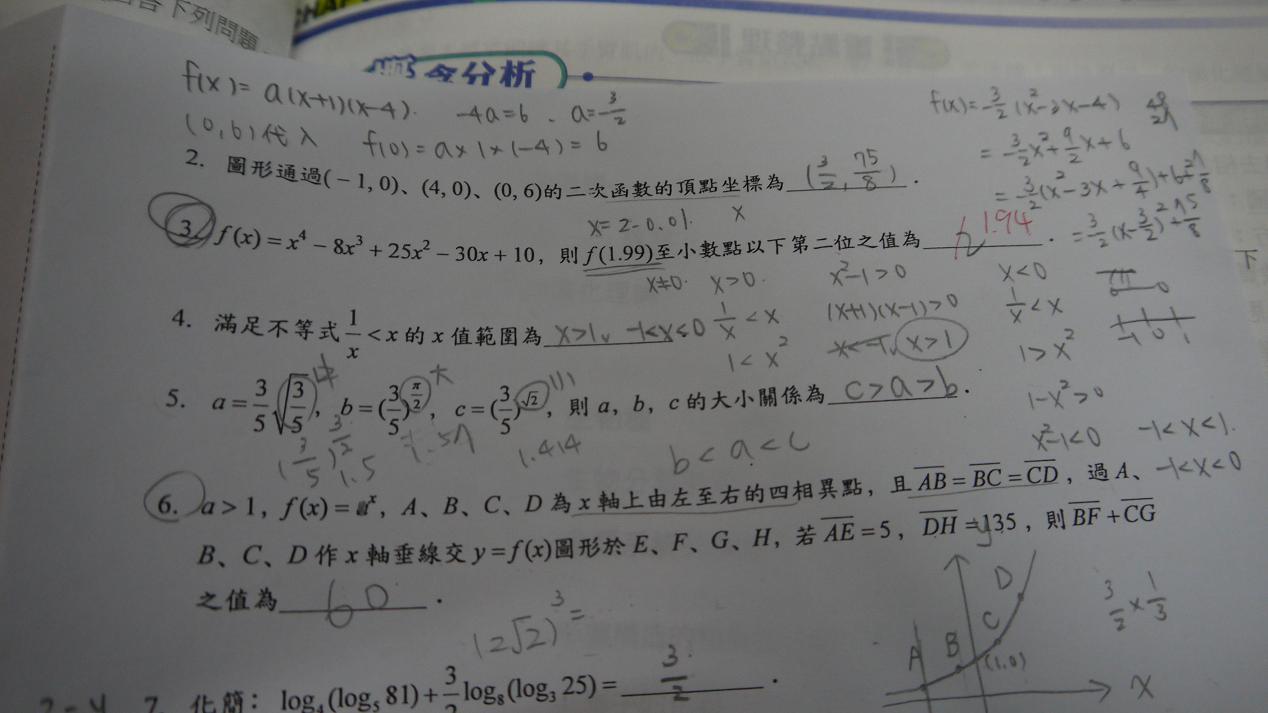 下列問題
念分析
f(x)= a(x+1)(x-4). -4a=6 、 a=-3/2
(0,6)代入 f(0)=a×1×(-4)=6
f(x)=-3/2(x²-3x-4)
=-3/2x²+9/2x+6
=-3/2(x²-3x+9/4)+6
=-3/2(x-3/2)²+75/8
2. 圖形通過(-1, 0)、(4, 0)、(0, 6)的二次函數的頂點坐標為 (3/2, 75/8) .
x=2-0.01 x
3. f(x)=x⁴-8x³+25x²-30x+10, 則 f(1.99)至小數點以下第二位之值為 1.94 .
x≠0. x>0. x²-1>0 x<0
1/x<x (x+1)(x-1)>0 1/x<x
4. 滿足不等式 1/x < x 的 x 值範圍為 x>1、-1<x<0 .
1<x² x<-1、x>1 1>x²
1-x²>0
x²-1<0 -1<x<1.
-1<x<0
中 大 小
5. a=3/5√(3/5), b=(3/5)^(π/2), c=(3/5)^√2, 則 a, b, c 的大小關係為 c>a>b .
(3/5)^(3/2) 1.5 1.57 1.414 b<a<c
6. a>1, f(x)=aˣ, A、B、C、D 為 x 軸上由左至右的四相異點, 且 AB=BC=CD, 過 A、
B、C、D 作 x 軸垂線交 y=f(x)圖形於 E、F、G、H, 若 AE=5, DH=135, 則 BF+CG
之值為 60 .
(2√2)³=
y D C B A (1,0) x
3/2×1/3
7. 化簡: log₄(log₅ 81)+3/2 log₈(log₃ 25)= 3/2 .